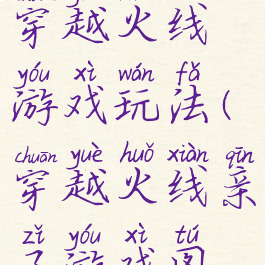 穿越火线
yóu xì wán fǎ
游戏玩法(
chuān yuè huǒ xiàn qīn
穿越火线亲
zǐ yóu xì tú
子游戏图